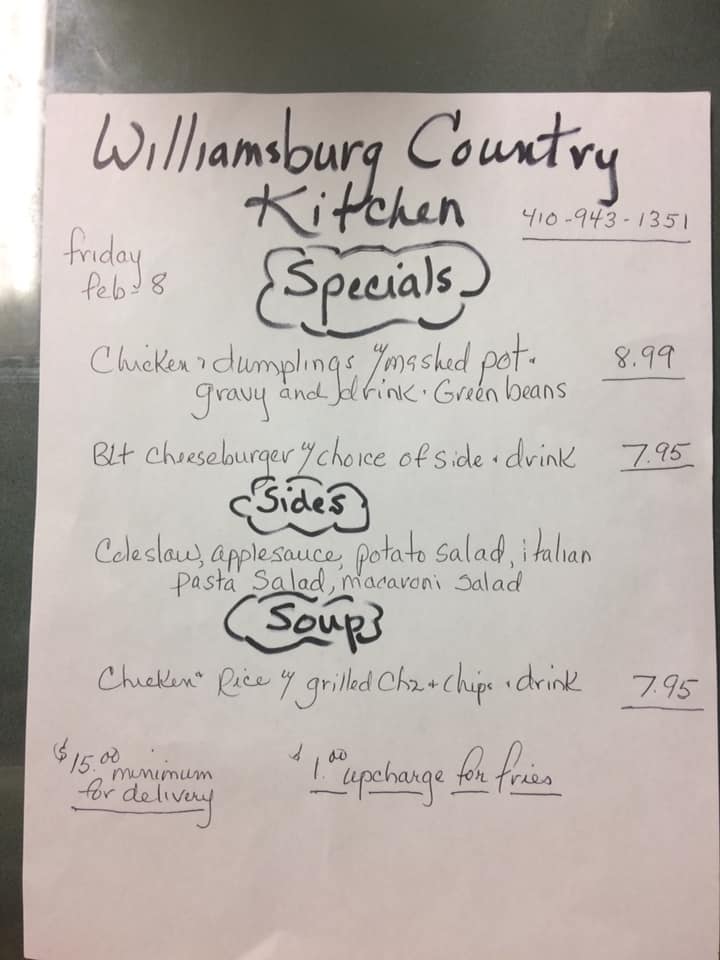 Williamsburg Country
Kitchen
410-943-1351
friday
feb- 8
Specials
Chicken & dumplings w/mashed pot.
gravy and drink. Green beans
8.99
Blt cheeseburger w/choice of side + drink
7.95
Sides
Coleslaw, applesauce, potato salad, italian
pasta salad, macaroni salad
Soup
Chicken + Rice w/ grilled Chz + chips + drink
7.95
$15.00 minimum
for delivery
$1.00 upcharge for fries